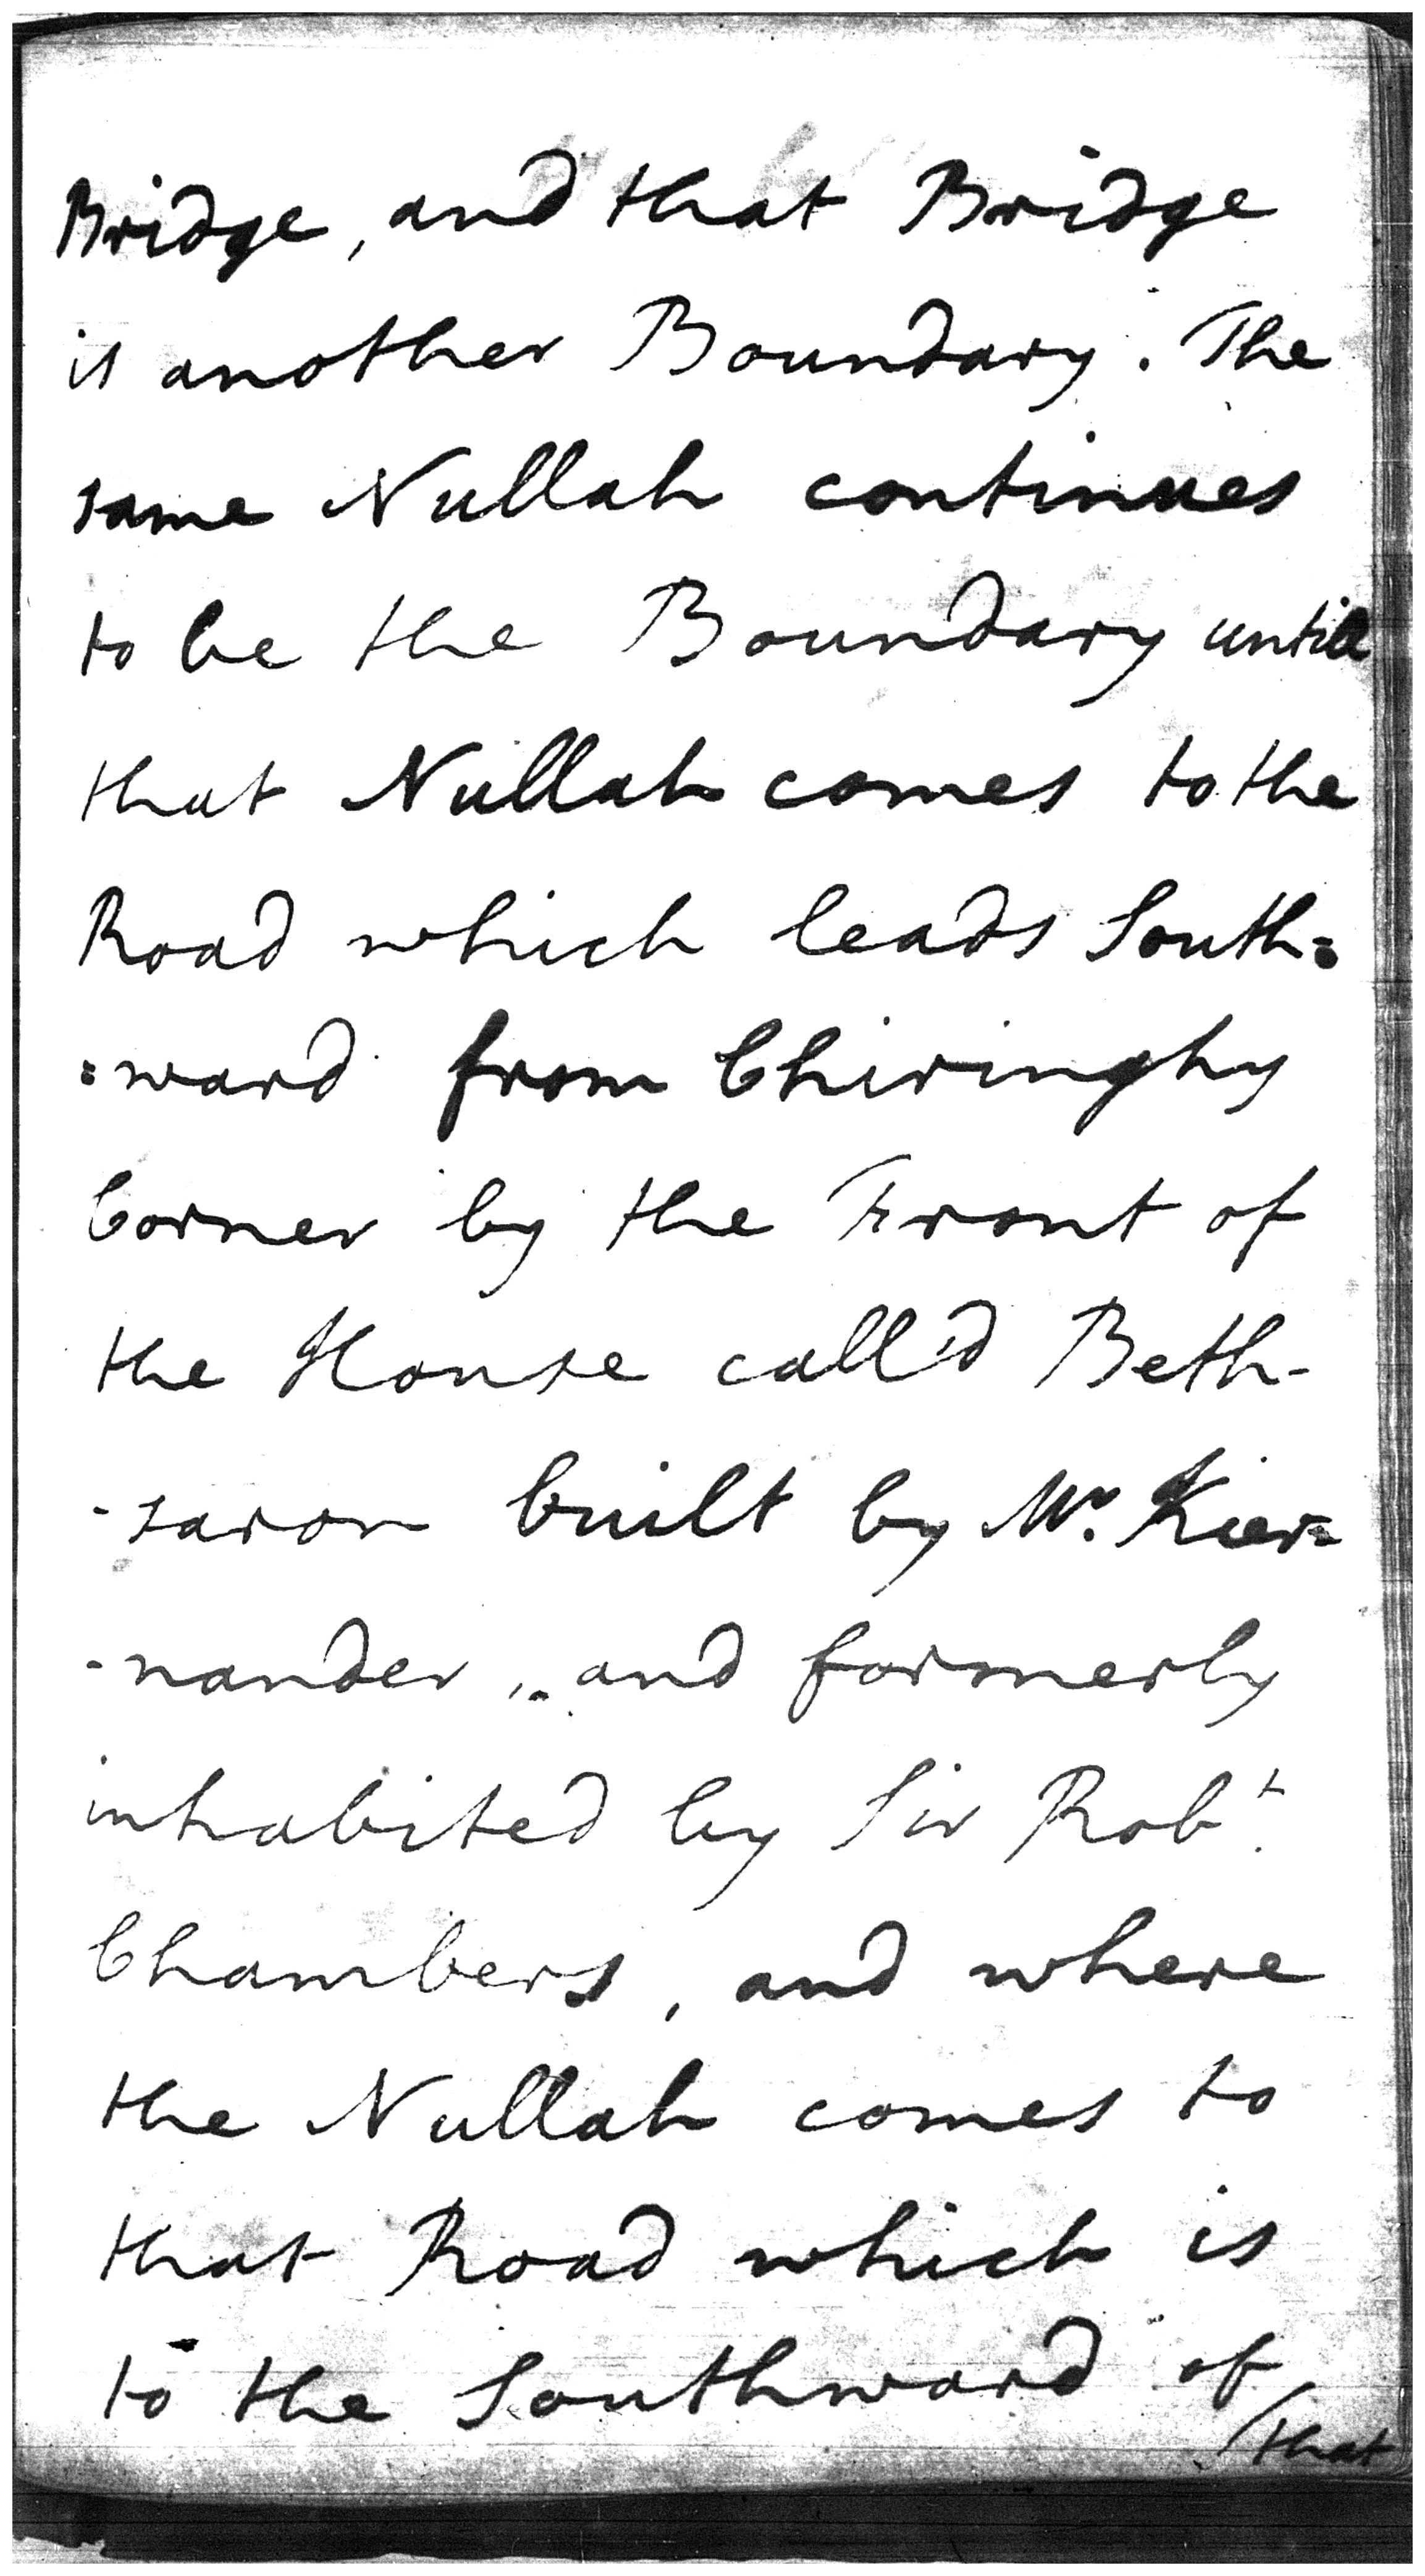 Bridge, and that Bridge
is another Boundary. The
same Nullah continues
to be the Boundary untill
that Nullah comes to the
Road which leads South=
=ward from Chiringhy
Corner by the Front of
the House call'd Beth-
-saron built by Mr. Kier=
-nander, and formerly
inhabited by Sir Robt.
Chambers, and where
the Nullah comes to
that Road which is
to the Southward of
/that